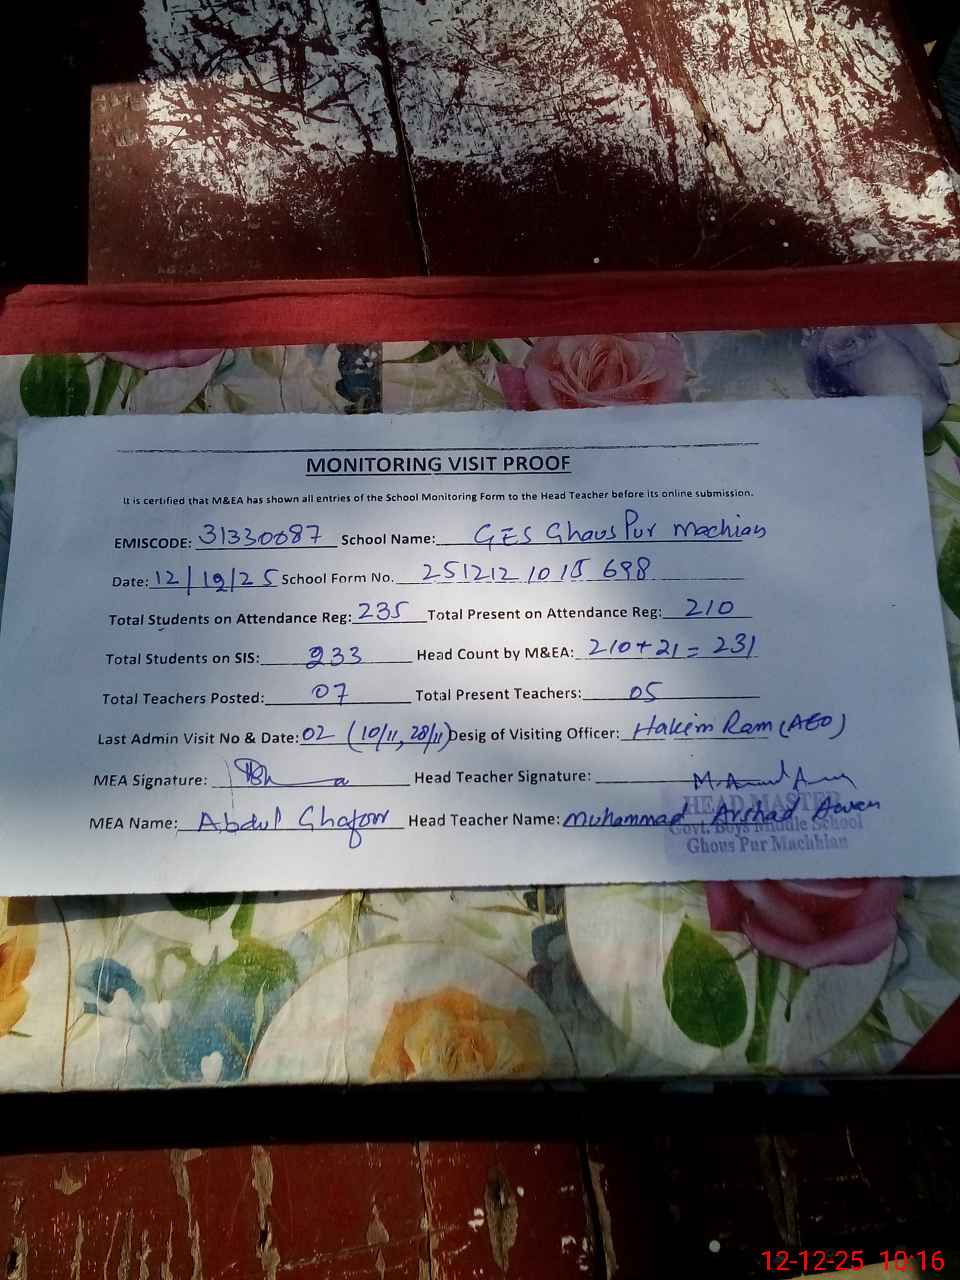 MONITORING VISIT PROOF
It is certified that M&EA has shown all entries of the School Monitoring Form to the Head Teacher before its online submission.
EMISCODE: 31330087 School Name: GES Ghous Pur Machian
Date: 12/12/25 School Form No. 251212 1015 698
Total Students on Attendance Reg: 235 Total Present on Attendance Reg: 210
Total Students on SIS: 233 Head Count by M&EA: 210+21=231
Total Teachers Posted: 07 Total Present Teachers: 05
Last Admin Visit No & Date: 02 (10/11, 28/11) Desig of Visiting Officer: Hakim Ram (AEO)
MEA Signature: Head Teacher Signature:
MEA Name: Abdul Ghafoor Head Teacher Name: Muhammad Arshad Awan
HEAD MASTER
Govt. Boys Middle School
Ghous Pur Machhian
12-12-25 10:16